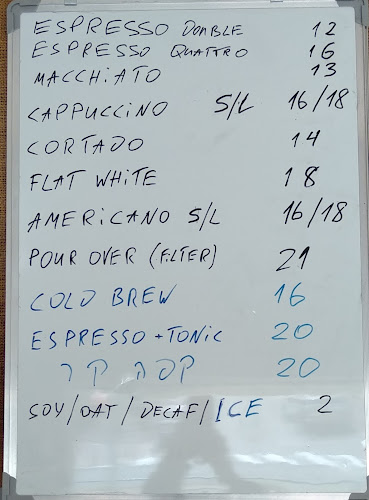 ESPRESSO DOUBLE 12
ESPRESSO QUATTRO 16
MACCHiATO 13
CAPPUCCiNO S/L 16/18
CORTADO 14
FLAT WHiTE 18
AMERiCANO S/L 16/18
POUR OVER (FiLTER) 21
COLD BREW 16
ESPRESSO + TONiC 20
קפה קר 20
SOY/OAT/DECAF/ICE 2